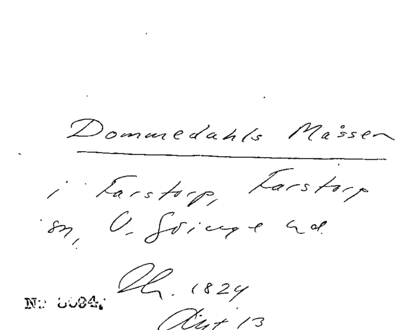 Dommedahls Måssen
i Farstorp, Farstorp
sn, V. Göinge hd.
Th. 1824
Akt 13